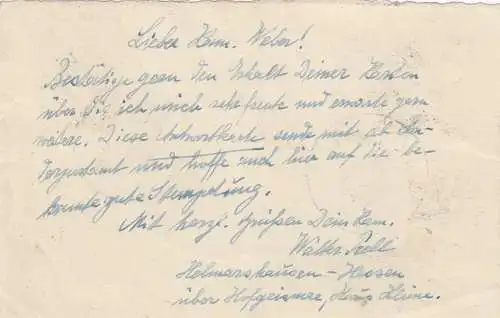 Lieber Ham. Weber!
Bestätige gern den Erhalt Deiner Karten
über die ich mich sehr freute und erwarte gern
weitere. Diese Antwortkarte sende mit ab
und hoffe auch hier auf die be-
kannte gute Stempelung.
Mit herzl. Grüßen Dein Ham.
Walter
Helmarshausen - Hessen
über Hofgeismar, Haus Kleine.